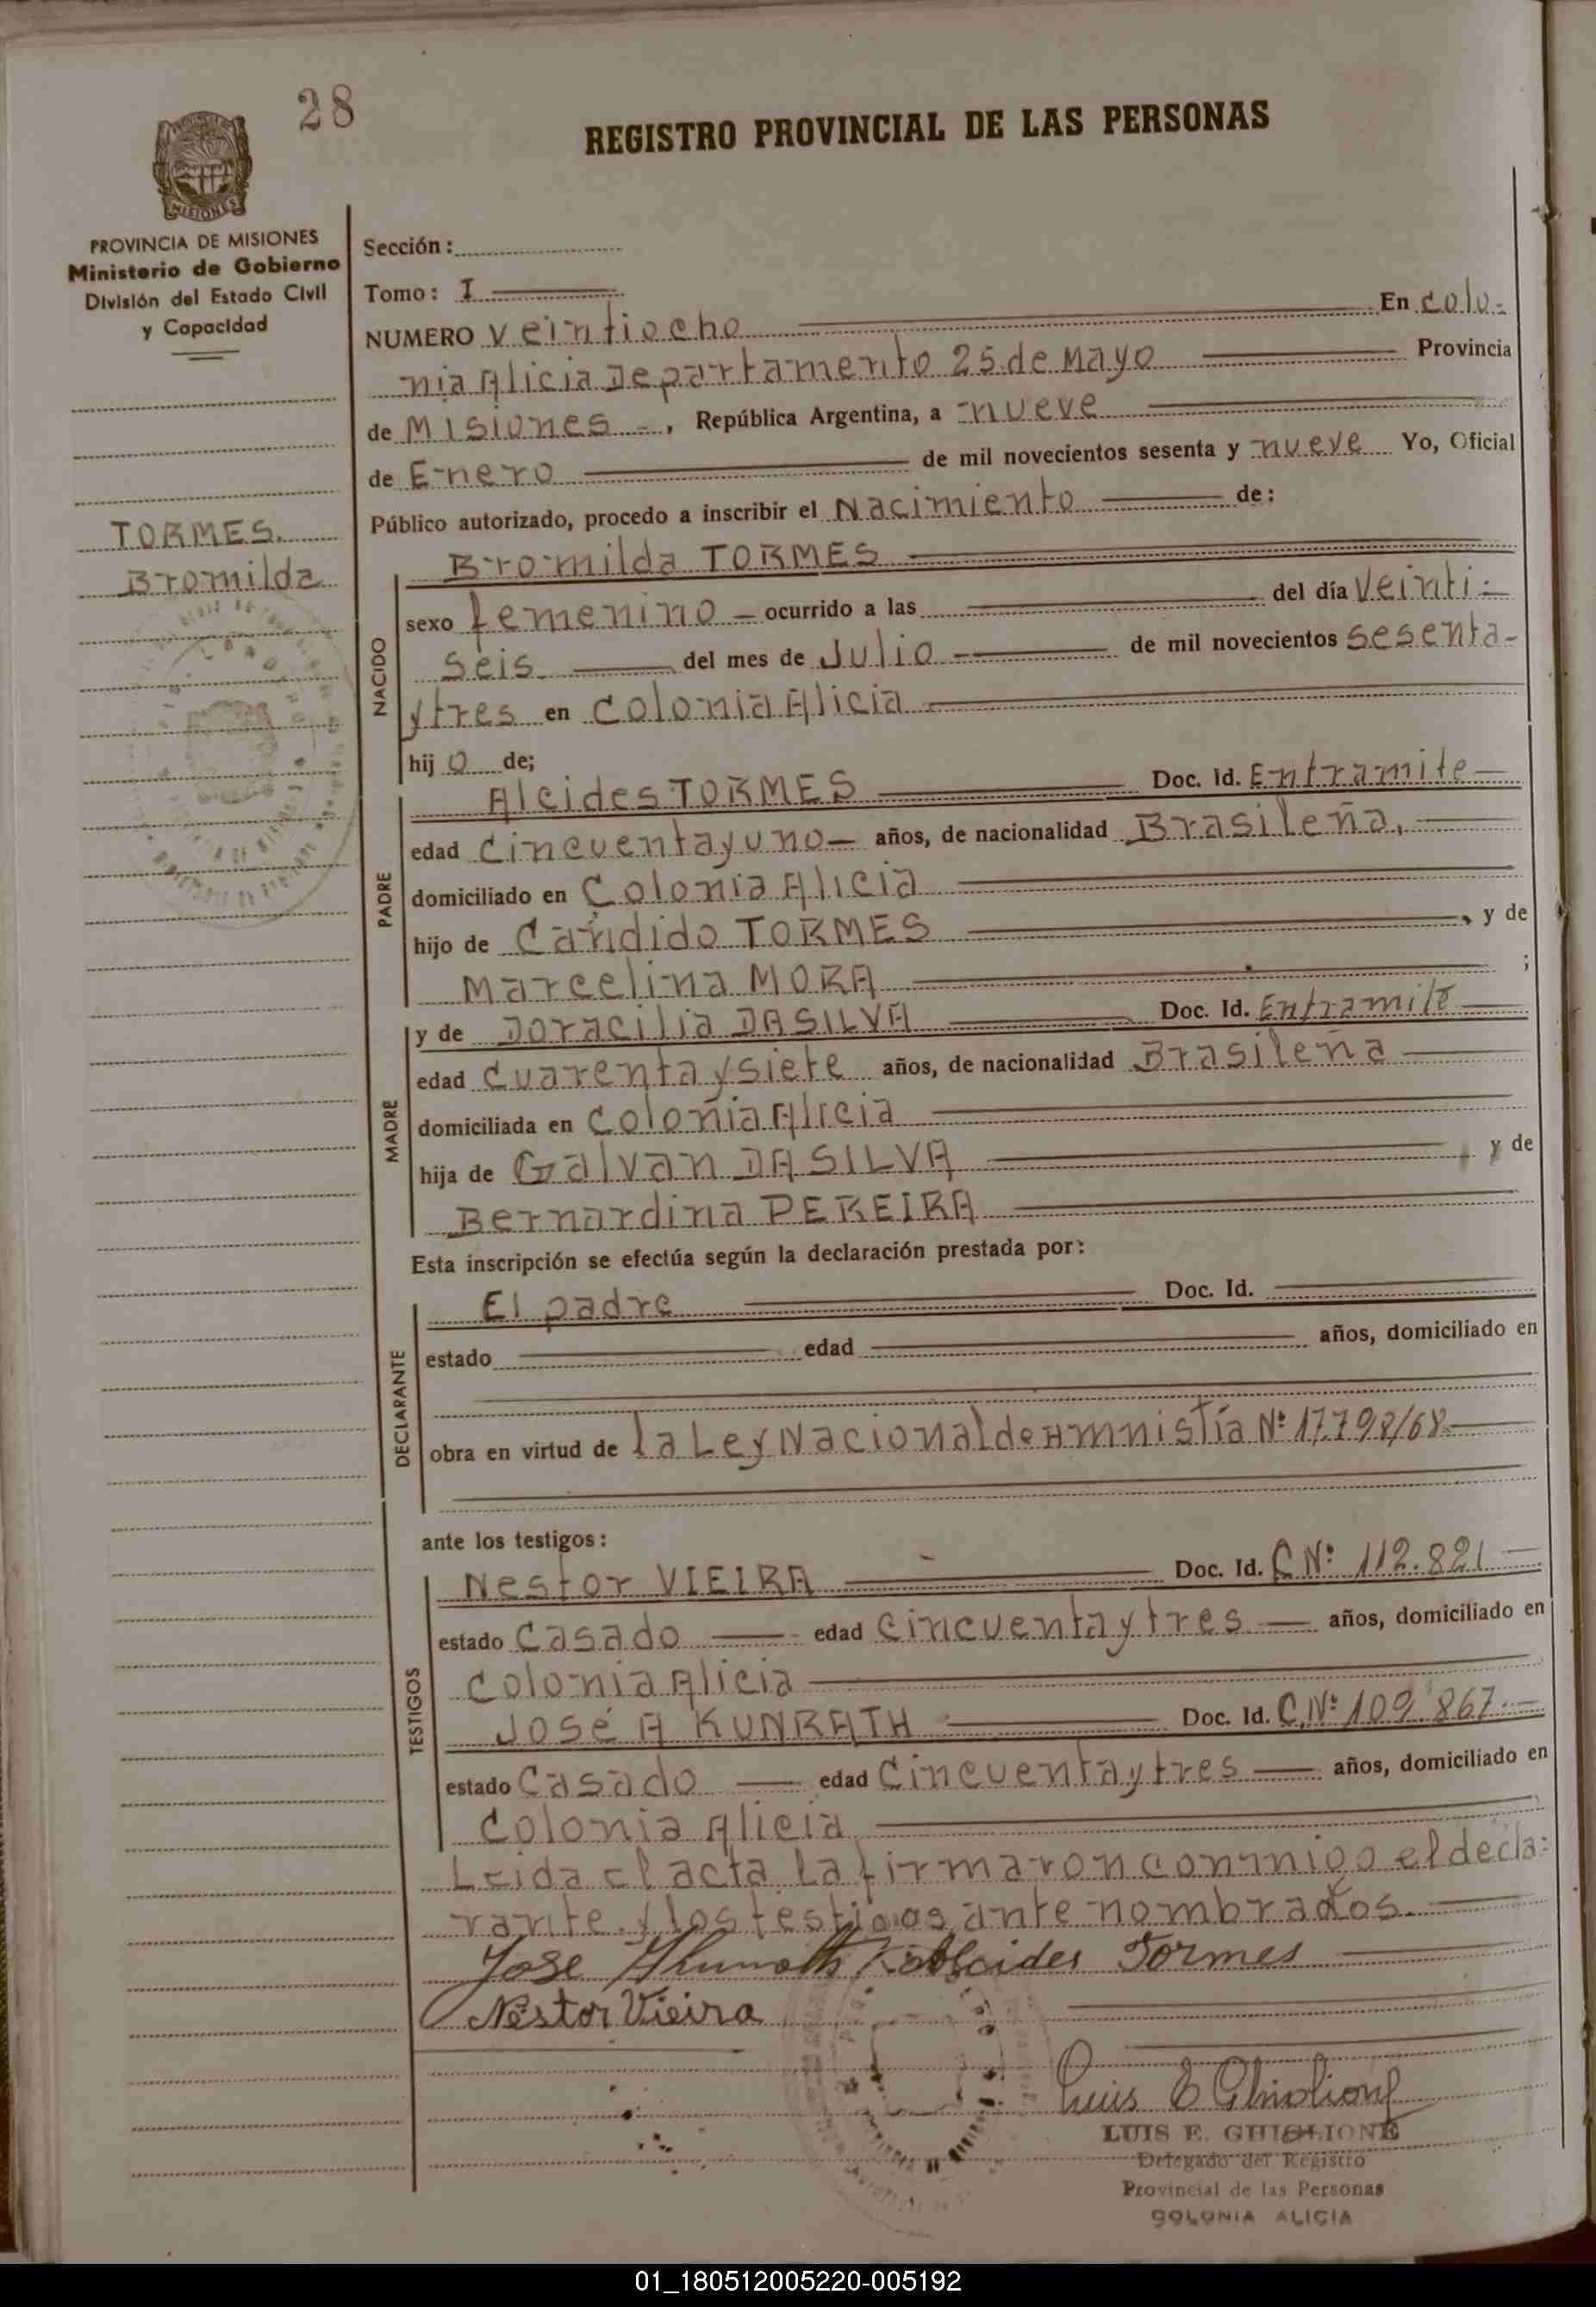 28
REGISTRO PROVINCIAL DE LAS PERSONAS
MISIONES
PROVINCIA DE MISIONES
Ministerio de Gobierno
División del Estado Civil
y Capacidad
TORMES.
Bromilda
Sección:
Tomo: I
NUMERO veintiocho En colo-
nia Alicia Departamento 25 de Mayo Provincia
de Misiones -, República Argentina, a nueve
de Enero de mil novecientos sesenta y nueve Yo, Oficial
Público autorizado, procedo a inscribir el Nacimiento de:
Bromilda TORMES
NACIDO
sexo femenino ocurrido a las del día veinti-
seis del mes de Julio de mil novecientos sesenta-
y tres en Colonia Alicia
hij o de;
PADRE
Alcides TORMES Doc. Id. En tramite
edad cincuenta y uno años, de nacionalidad Brasileña,
domiciliado en Colonia Alicia
hijo de Candido TORMES, y de
Marcelina MORA ;
MADRE
y de Doracilia DA SILVA Doc. Id. En tramite
edad cuarenta y siete años, de nacionalidad Brasileña
domiciliada en Colonia Alicia
hija de Galvan DA SILVA y de
Bernardina PEREIRA
Esta inscripción se efectúa según la declaración prestada por:
DECLARANTE
El padre Doc. Id.
estado edad años, domiciliado en
obra en virtud de la Ley Nacional de Amnistía Nº 17.798/68
ante los testigos:
TESTIGOS
Nestor VIEIRA Doc. Id. C Nº 112.821
estado Casado edad cincuenta y tres años, domiciliado en
Colonia Alicia
José A KUNRATH Doc. Id. C. Nº 109.867
estado Casado edad cincuenta y tres años, domiciliado en
Colonia Alicia
Leida el acta la firmaron conmigo el decla-
rante y los testigos ante nombrados.
Jose Alcides Tormes
Néstor Vieira
Luis E Ghiglione
LUIS E. GHIGLIONE
Delegado del Registro
Provincial de las Personas
COLONIA ALICIA
01_180512005220-005192